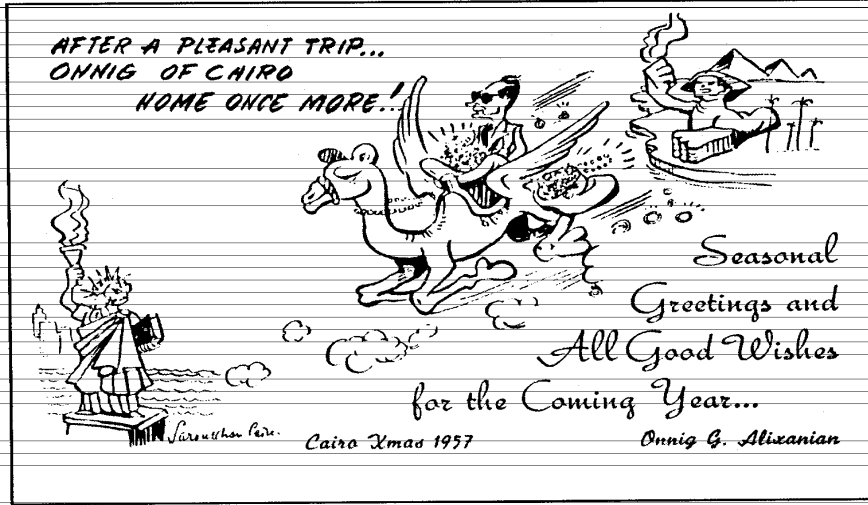 AFTER A PLEASANT TRIP...
ONNIG OF CAIRO
HOME ONCE MORE.!
Seasonal
Greetings and
All Good Wishes
for the Coming Year...
Saroukhan Caire.
Cairo Xmas 1957
Onnig G. Alixanian